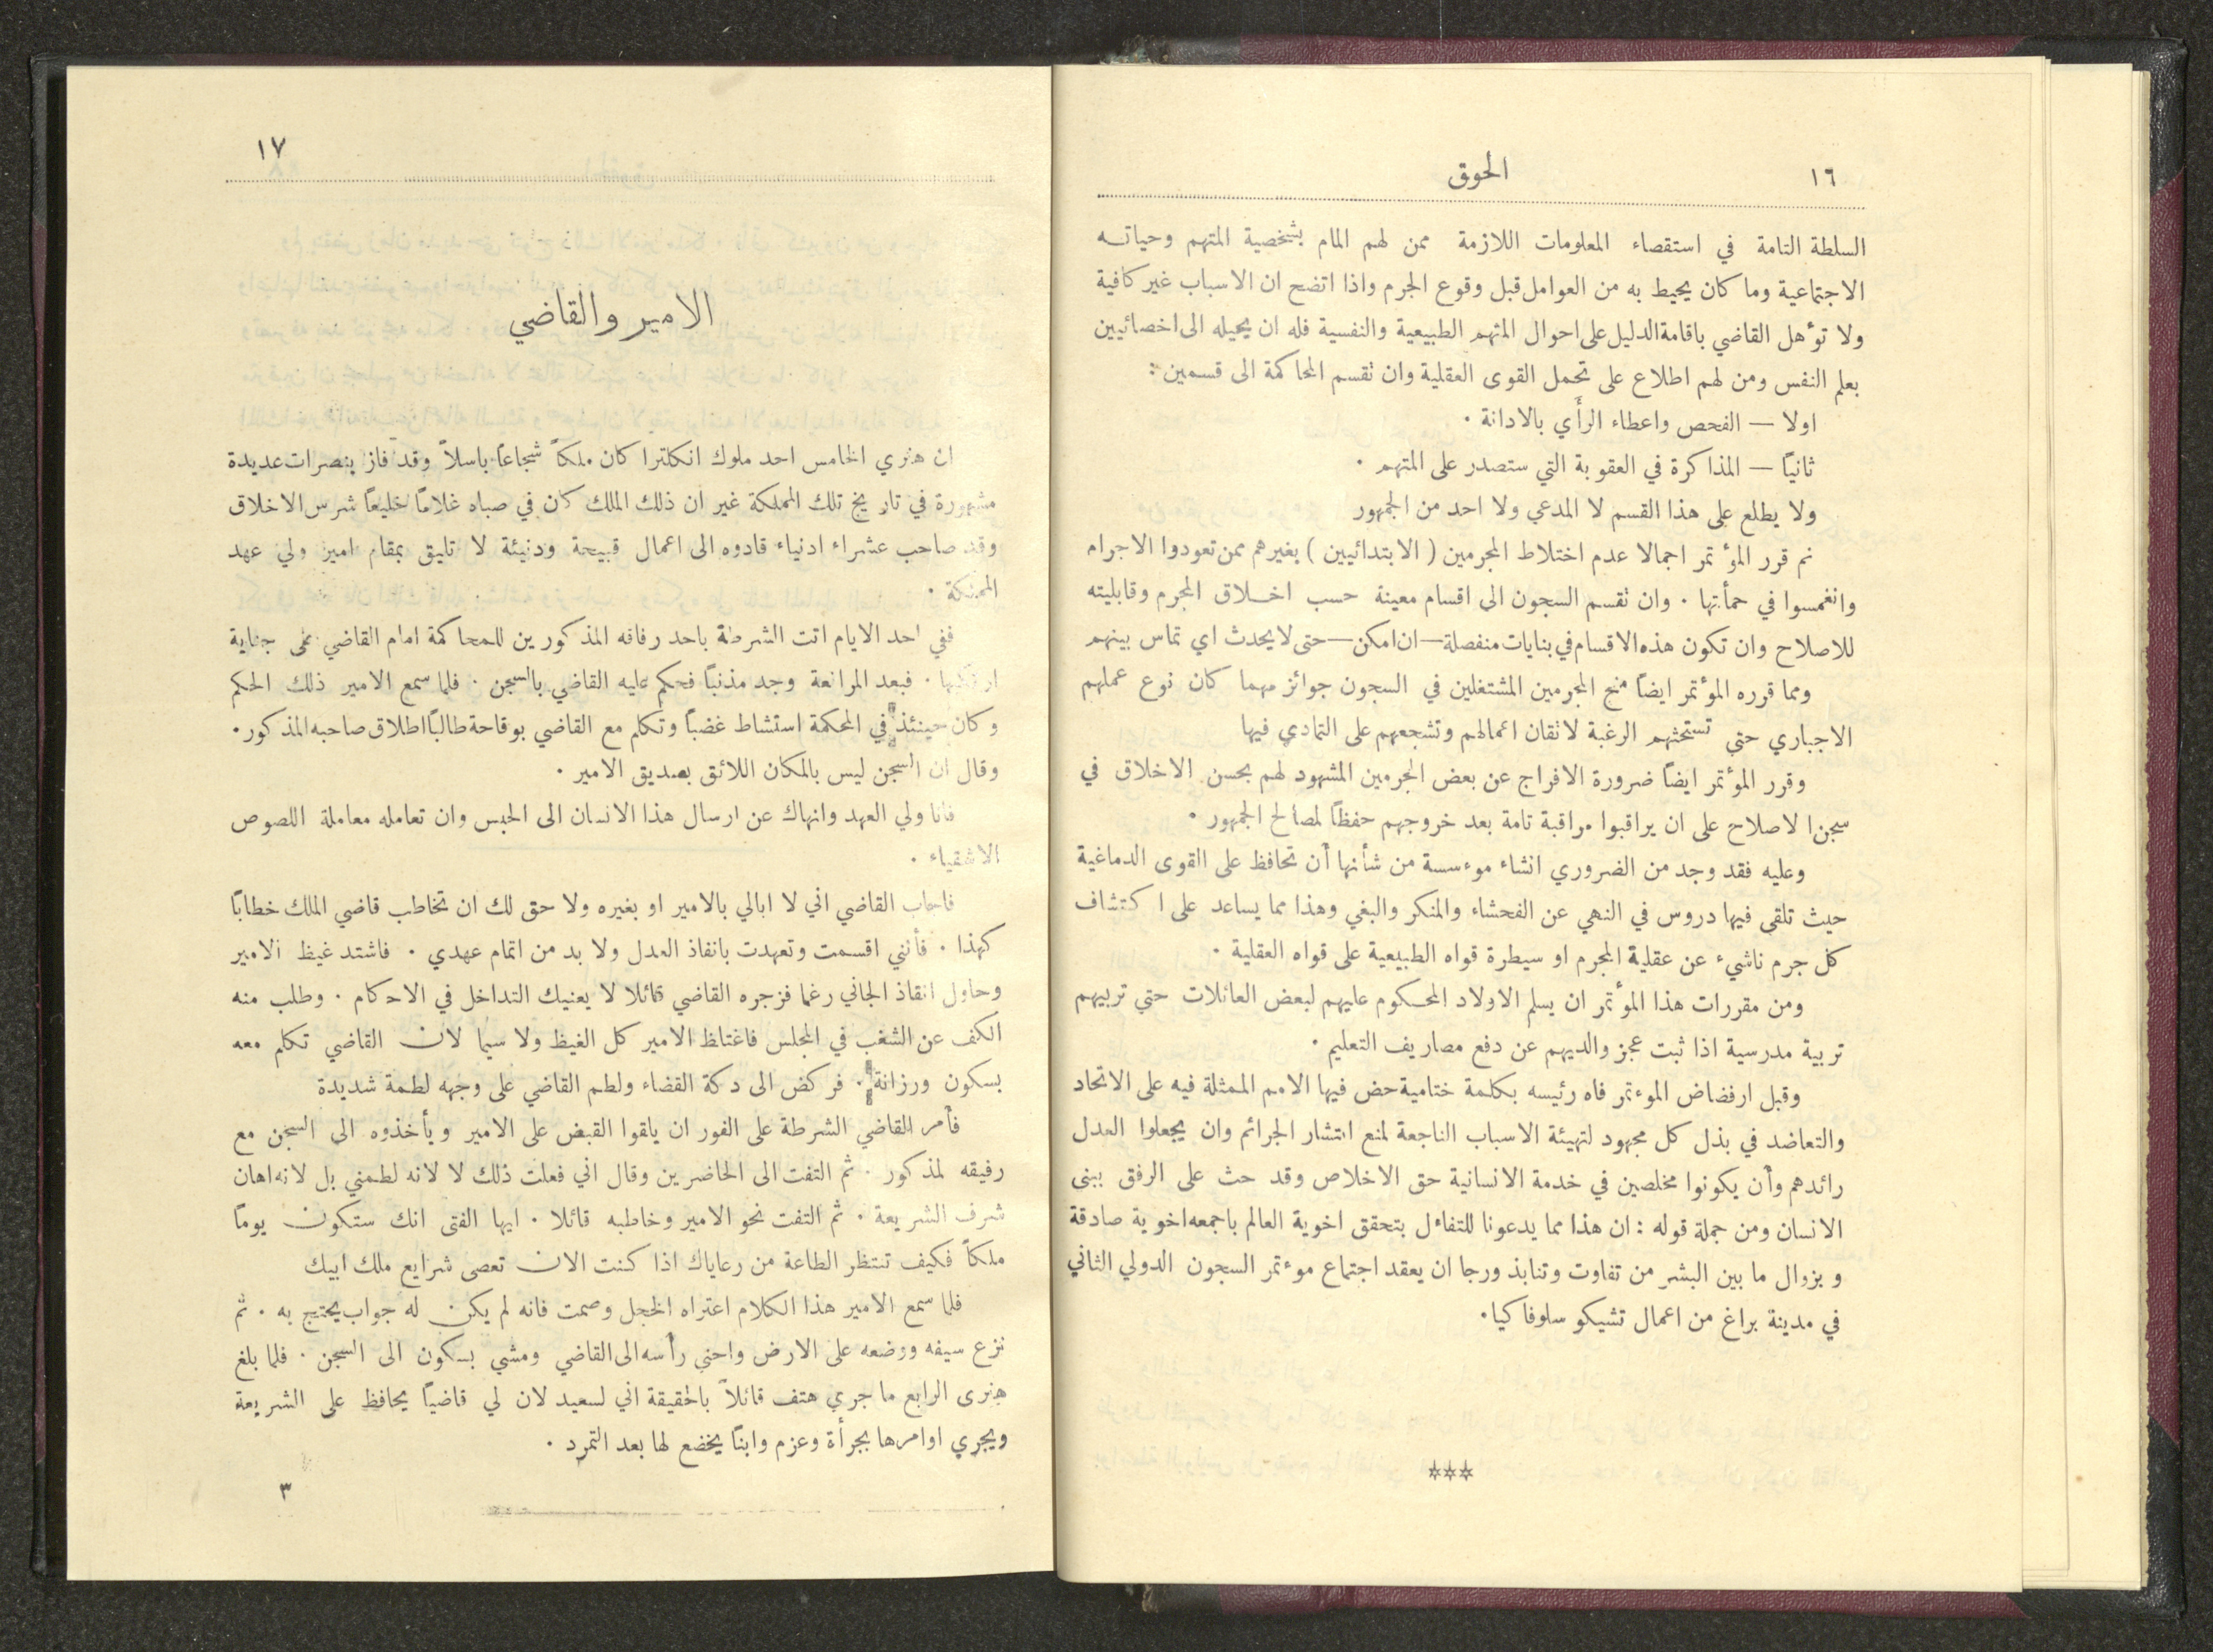 ١٦
الحوق
السلطة التامة في استقصاء المعلومات اللازمة ممن لهم المام بشخصية المتهم وحياته
الاجتماعية وما كان يحيط به من العوامل قبل وقوع الجرم واذا اتضح ان الاسباب غير كافية
ولا تؤهل القاضي باقامة الدليل على احوال المتهم الطبيعية والنفسية فله ان يحيله الى اخصائيين
بعلم النفس ومن لهم اطلاع على تحمل القوى العقلية وان تقسم المحاكمة الى قسمين :
اولا — الفحص واعطاء الرأَي بالادانة .
ثانيًا — المذاكرة في العقوبة التي ستصدر على المتهم .
ولا يطلع على هذا القسم لا المدعي ولا احد من الجمهور
ثم قرر المؤتمر اجمالا عدم اختلاط المجرمين ( الابتدائيين ) بغيرهم ممن تعودوا الاجرام
وانغمسوا في حمأتها . وان تقسم السجون الى اقسام معينة حسب اخلاق المجرم وقابليته
للاصلاح وان تكون هذه الاقسام في بنايات منفصلة — ان امكن — حتى لا يحدث اي تماس بينهم
ومما قرره المؤتمر ايضًا منح المجرمين المشتغلين في السجون جوائز مهما كان نوع عملهم
الاجباري حتي تستحثهم الرغبة لاتقان اعمالهم وتشجعهم على التمادي فيها
وقرر المؤتمر ايضًا ضرورة الافراج عن بعض المجرمين المشهود لهم بحسن الاخلاق في
سجن الاصلاح على ان يراقبوا مراقبة تامة بعد خروجهم حفظًا لمصالح الجمهور .
وعليه فقد وجد من الضروري انشاء موءسسة من شأنها أن تحافظ على القوى الدماغية
حيث تلقى فيها دروس في النهي عن الفحشاء والمنكر والبغي وهذا مما يساعد على اكتشاف
كل جرم ناشيء عن عقلية المجرم او سيطرة قواه الطبيعية على قواه العقلية .
ومن مقررات هذا المؤتمر ان يسلم الاولاد المحكوم عليهم لبعض العائلات حتي تربيهم
تربية مدرسية اذا ثبت عجز والديهم عن دفع مصاريف التعليم .
وقبل ارفضاض الموءتمر فاه رئيسه بكلمة ختامية حض فيها الامم الممثلة فيه على الاتحاد
والتعاضد في بذل كل مجهود لتهيئة الاسباب الناجعة لمنع انتشار الجرائم وان يجعلوا العدل
رائدهم وأن يكونوا مخلصين في خدمة الانسانية حق الاخلاص وقد حث على الرفق ببنى
الانسان ومن جملة قوله : ان هذا مما يدعونا للتفاءل بتحقق اخوية العالم باجمعه اخوية صادقة
وبزوال ما بين البشر من تفاوت وتنابذ ورجا ان يعقد اجتماع موءتمر السجون الدولي الثاني
في مدينة براغ من اعمال تشيكو سلوفاكيا .
***
١٧
الامير والقاضي
ان هنري الخامس احد ملوك انكلترا كان ملكاً شجاعًا باسلاً وقد فاز بنصرات عديدة
مشهورة في تاريخ تلك المملكة غير ان ذلك الملك كان في صباه غلامًا خليعًا شرس الاخلاق
وقد صاحب عشراء ادنياء قادوه الى اعمال قبيحة ودنيئة لا تليق بمقام امير ولي عهد
المملكة .
ففي احد الايام اتت الشرطة باحد رفاقه المذكورين للمحاكمة امام القاضي على جناية
ارتكبها . فبعد المرافعة وجد مذنبًا فحكم عليه القاضي بالسجن . فلما سمع الامير ذلك الحكم
وكان حينئذ في المحكمة استشاط غضبًا وتكلم مع القاضي بوقاحة طالبًا اطلاق صاحبه المذكور .
وقال ان السجن ليس بالمكان اللائق بصديق الامير .
فانا ولي العهد وانهاك عن ارسال هذا الانسان الى الحبس وان تعامله معاملة اللصوص
الاشقياء .
فاجاب القاضي اني لا ابالي بالامير او بغيره ولا حق لك ان تخاطب قاضي الملك خطابًا
كهذا . فأنني اقسمت وتعهدت بانفاذ العدل ولا بد من اتمام عهدي . فاشتد غيظ الامير
وحاول انقاذ الجاني رغما فزجره القاضي قائلا لا يعنيك التداخل في الاحكام . وطلب منه
الكف عن الشغب في المجلس فاغتاظ الامير كل الغيظ ولا سيما لان القاضي تكلم معه
بسكون ورزانة . فركض الى دكة القضاء ولطم القاضي على وجهه لطمة شديدة
فأمر القاضي الشرطة على الفور ان يلقوا القبض على الامير ويأخذوه الى السجن مع
رفيقه لمذكور . ثم التفت الى الحاضرين وقال اني فعلت ذلك لا لانه لطمني بل لانه اهان
شرف الشريعة . ثم التفت نحو الامير وخاطبه قائلا . ايها الفتى انك ستكون يومًا
ملكاً فكيف تنتظر الطاعة من رعاياك اذا كنت الان تعصى شرايع ملك ابيك
فلما سمع الامير هذا الكلام اعتراه الخجل وصمت فانه لم يكن له جواب يحتج به . ثم
نزع سيفه ووضعه على الارض واحنى رأسه الى القاضي ومشي بسكون الى السجن . فلما بلغ
هنرى الرابع ما جري هتف قائلاً بالحقيقة اني لسعيد لان لي قاضيًا يحافظ على الشريعة
ويجري اوامرها بجرأة وعزم وابنًا يخضع لها بعد التمرد .
٣